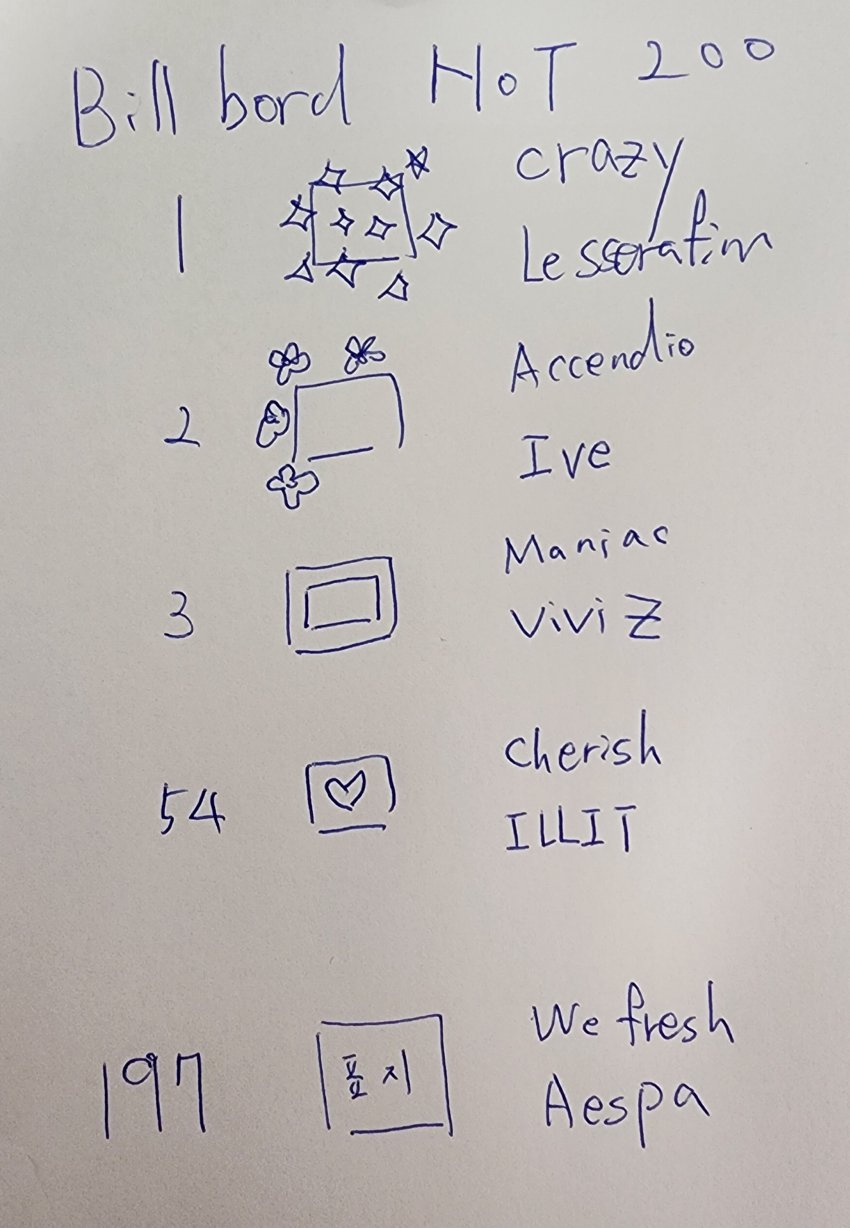 Bill bord HOT 200
1
crazy
Lesserafim
2
Accendio
Ive
3
Maniac
ViviZ
54
Cherish
ILLIT
197
표지
We fresh
Aespa